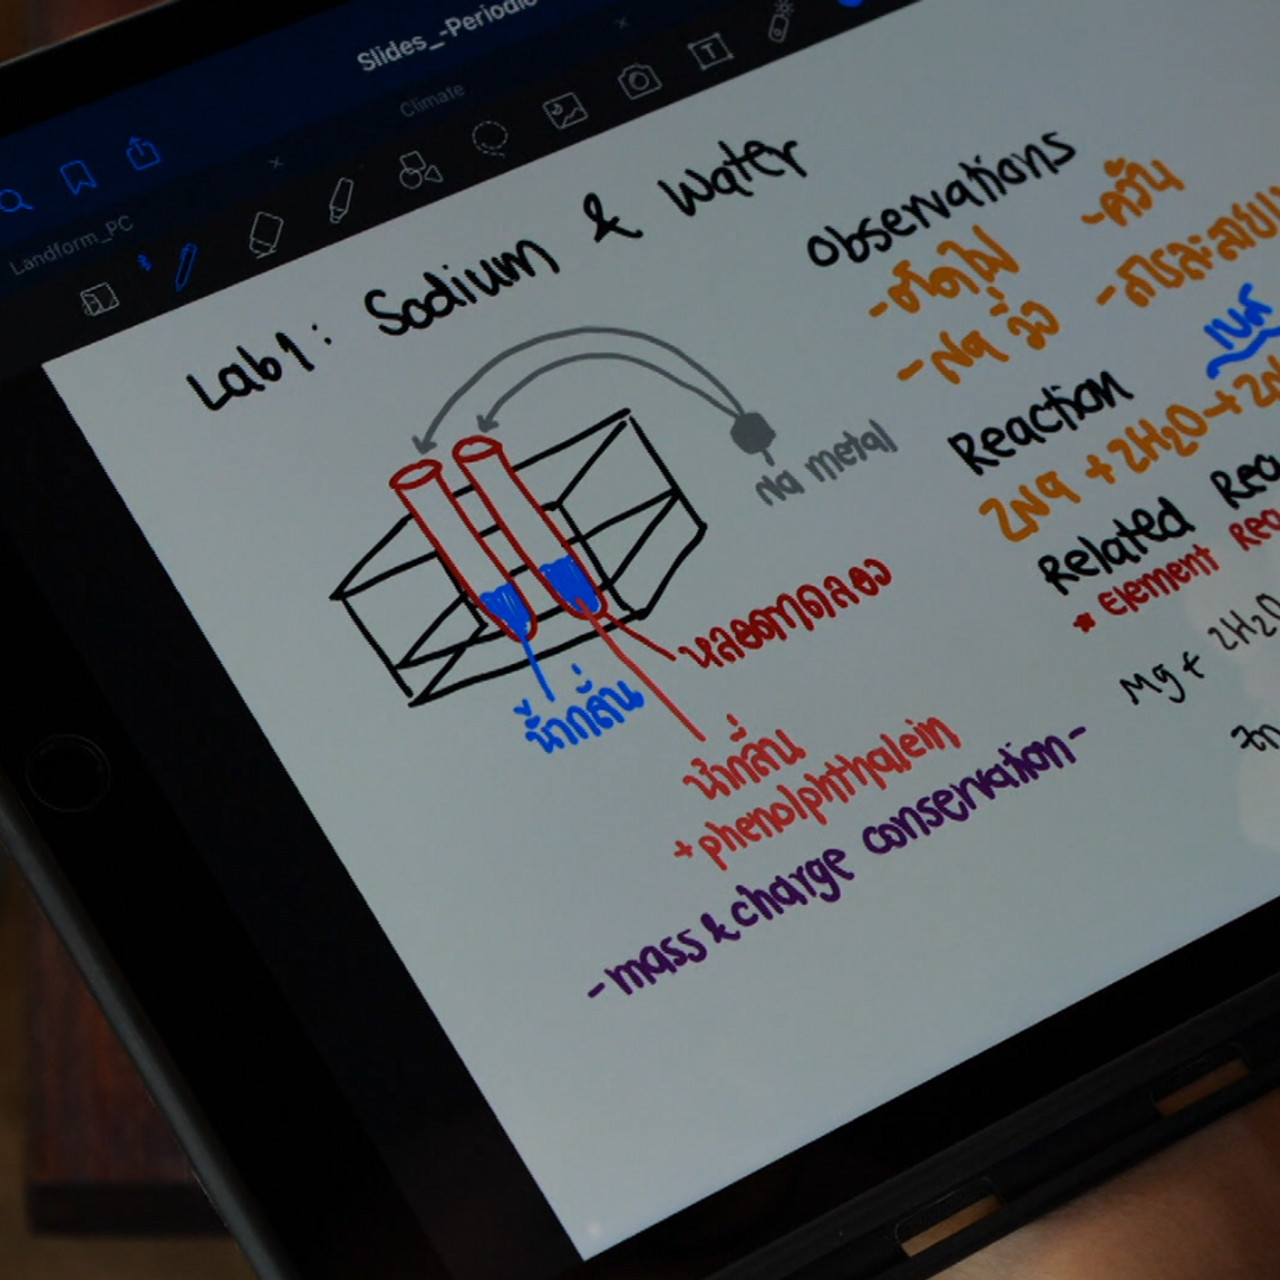 Slides_-Periodic
Climate
Landform_PC
Lab 1: Sodium & Water
Na metal
หลอดทดลอง
น้ำกลั่น
น้ำกลั่น
+ phenolphthalein
- mass & charge conservation -
Observations
- ติดไฟ
- ควัน
- Na วิ่ง
- สารละลาย
Reaction
เบส
2Na + 2H₂O → 2N
Related Rea
* Element Rea
Mg + 2H₂O